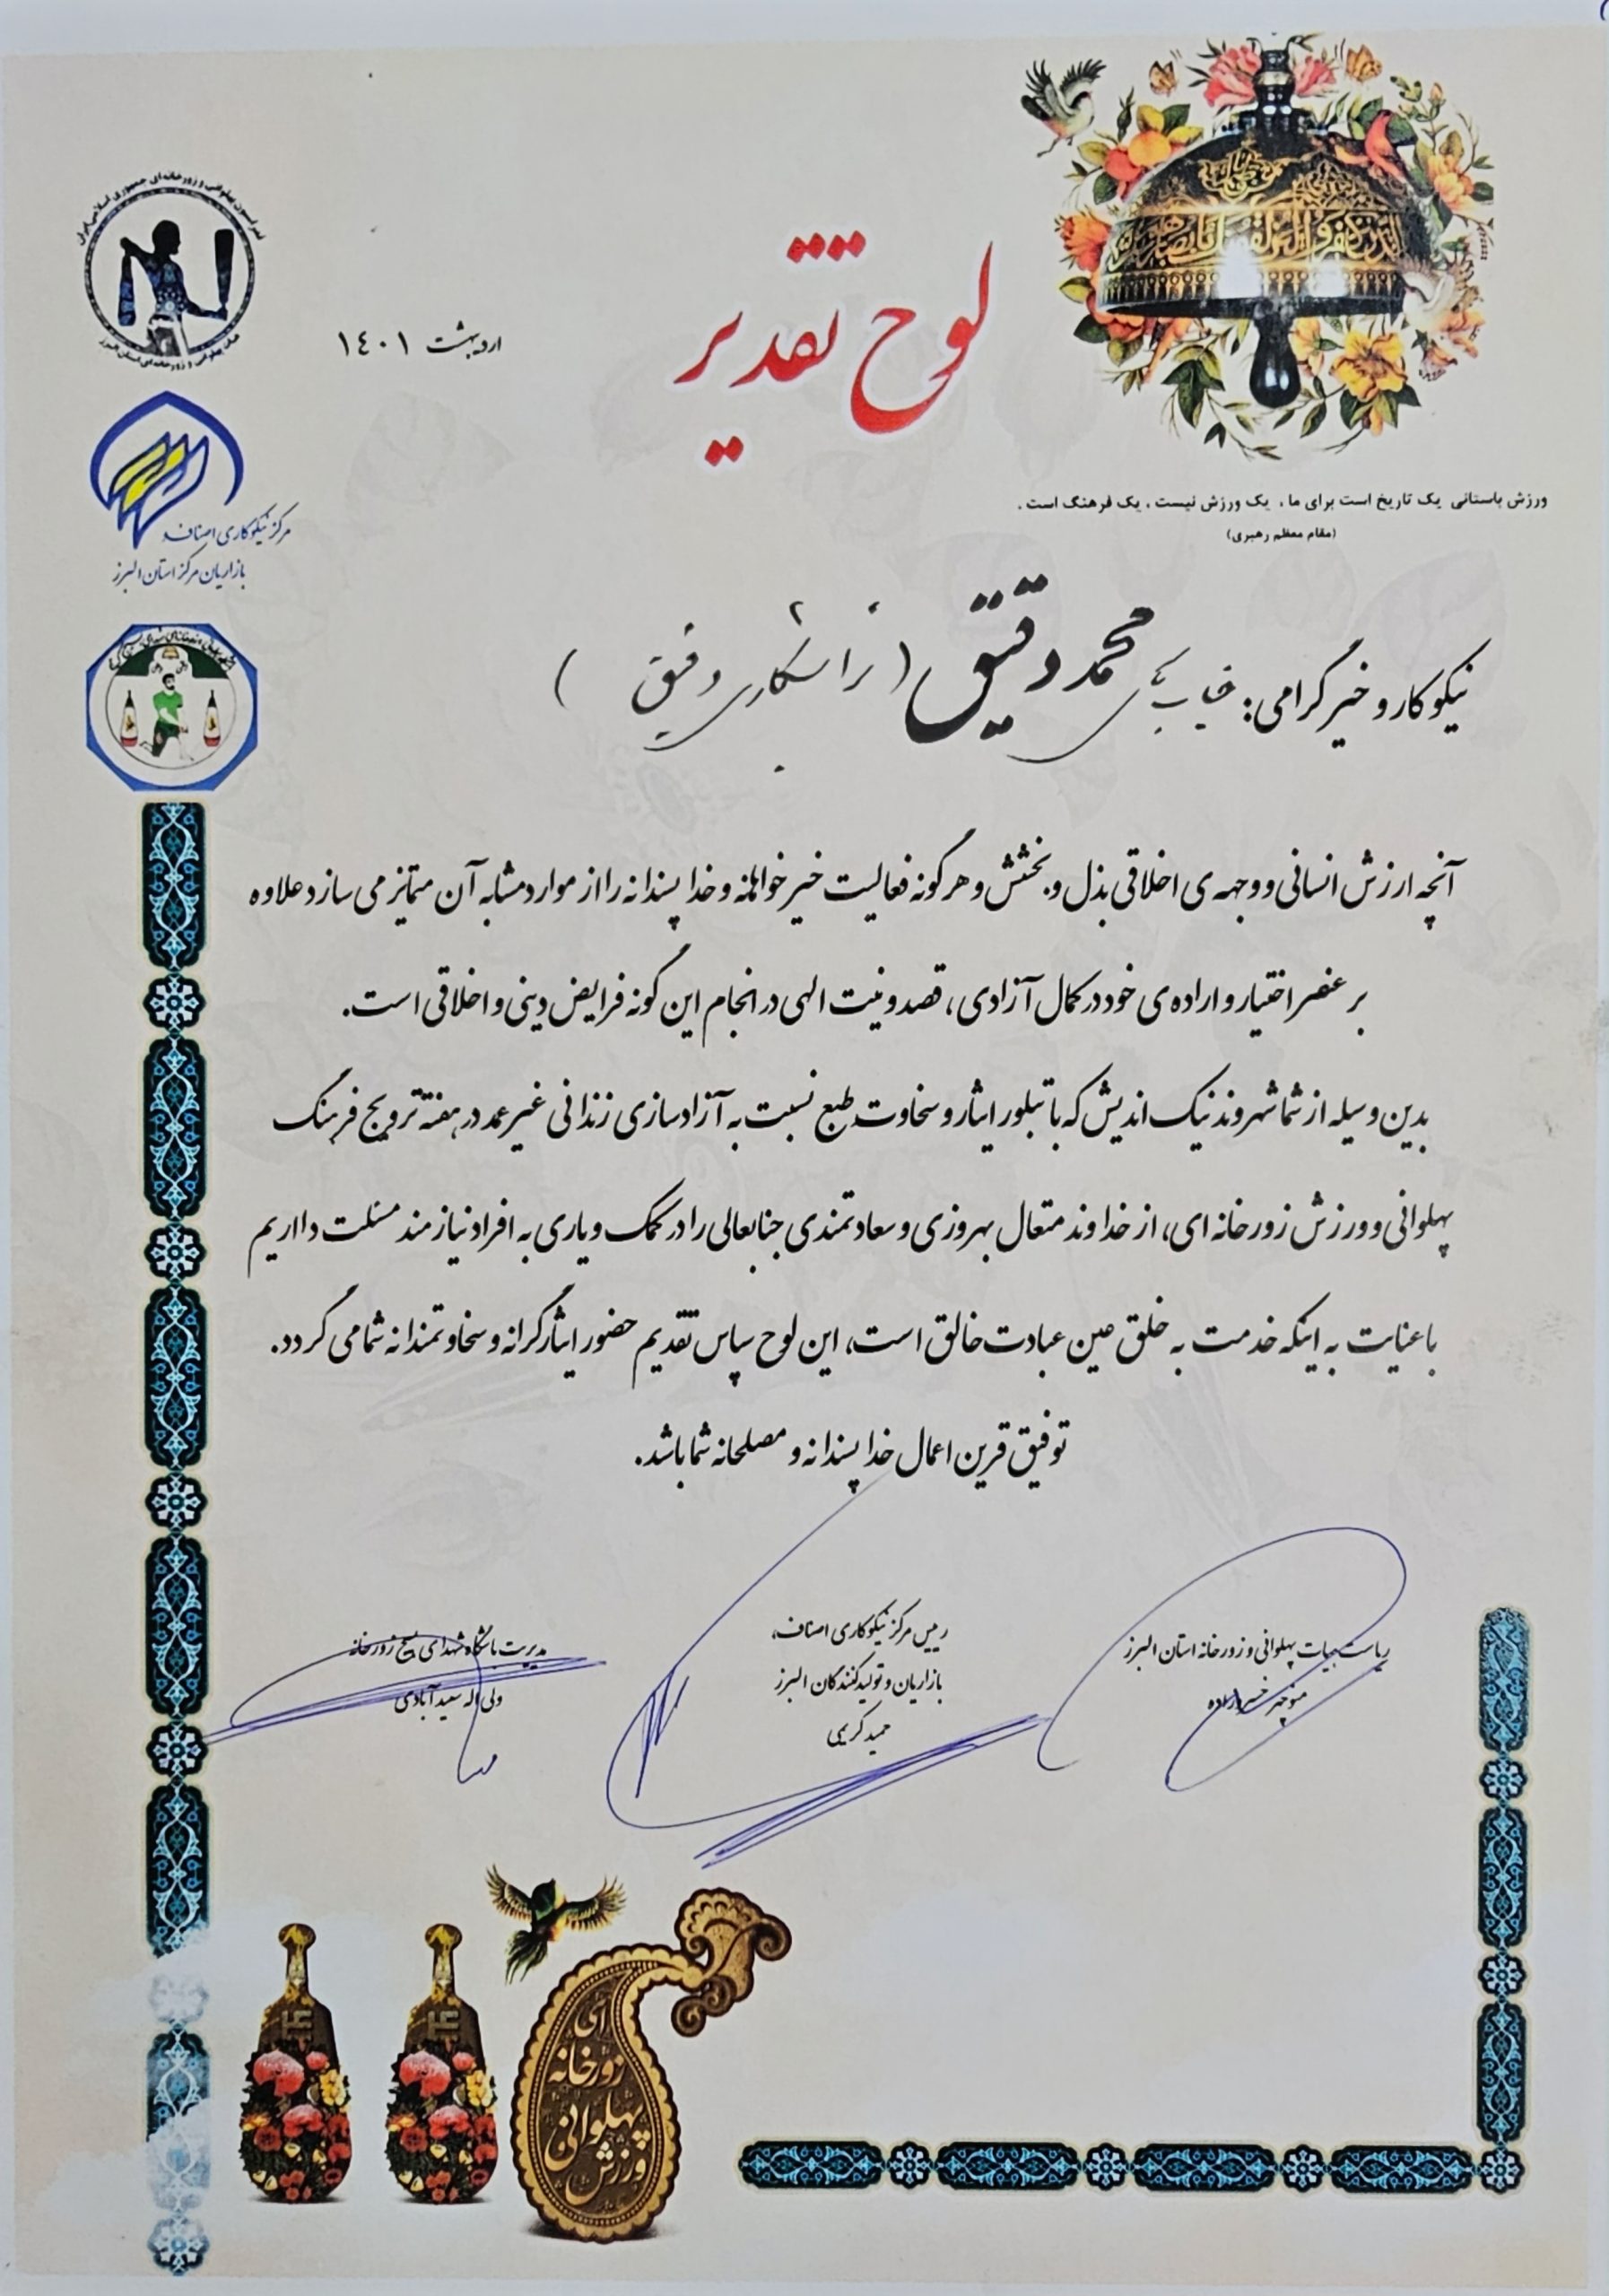 لوح تقدیر
اردیبهشت ۱۴۰۱
ورزش باستانی یک تاریخ است برای ما، یک ورزش نیست، یک فرهنگ است.
(مقام معظم رهبری)
مرکز نیکوکاری اصناف و
بازاریان مرکز استان البرز
نیکوکار و خیر گرامی: جناب آقای محمد دقیق (تراشکاری دقیق)
آنچه ارزش انسانی و وجهه ی اخلاقی بذل و بخشش و هر گونه فعالیت خیرخواهانه و خدا پسندانه را از موارد مشابه آن متمایز می سازد علاوه
بر عنصر اختیار و اراده ی خود در کمال آزادی، قصد و نیت الهی در انجام این گونه فرایض دینی و اخلاقی است.
بدین وسیله از شما شهروند نیک اندیش که با تبلور ایثار و سخاوت طبع نسبت به آزادسازی زندانی غیر عمد در هفته ترویج فرهنگ
پهلوانی و ورزش زورخانه ای، از خداوند متعال بهروزی و سعادتمندی جنابعالی را در کمک و یاری به افراد نیازمند مسئلت دااریم
با عنایت به اینکه خدمت به خلق عین عبادت خالق است، این لوح سپاس تقدیم حضور ایثارگرانه و سخاوتمندانه شما می گردد.
توفیق قرین اعمال خدا پسندانه و مصلحانه شما باشد.
ریاست هیات پهلوانی و زورخانه استان البرز
منوچهر خسروزاده
رییس مرکز نیکوکاری اصناف،
بازاریان و تولیدکنندگان البرز
حمید کریمی
مدیریت باشگاه شهدای بسیج زورخانه
ولی اله سعیدآبادی
ورزش
پهلوانی
زورخانه
ای